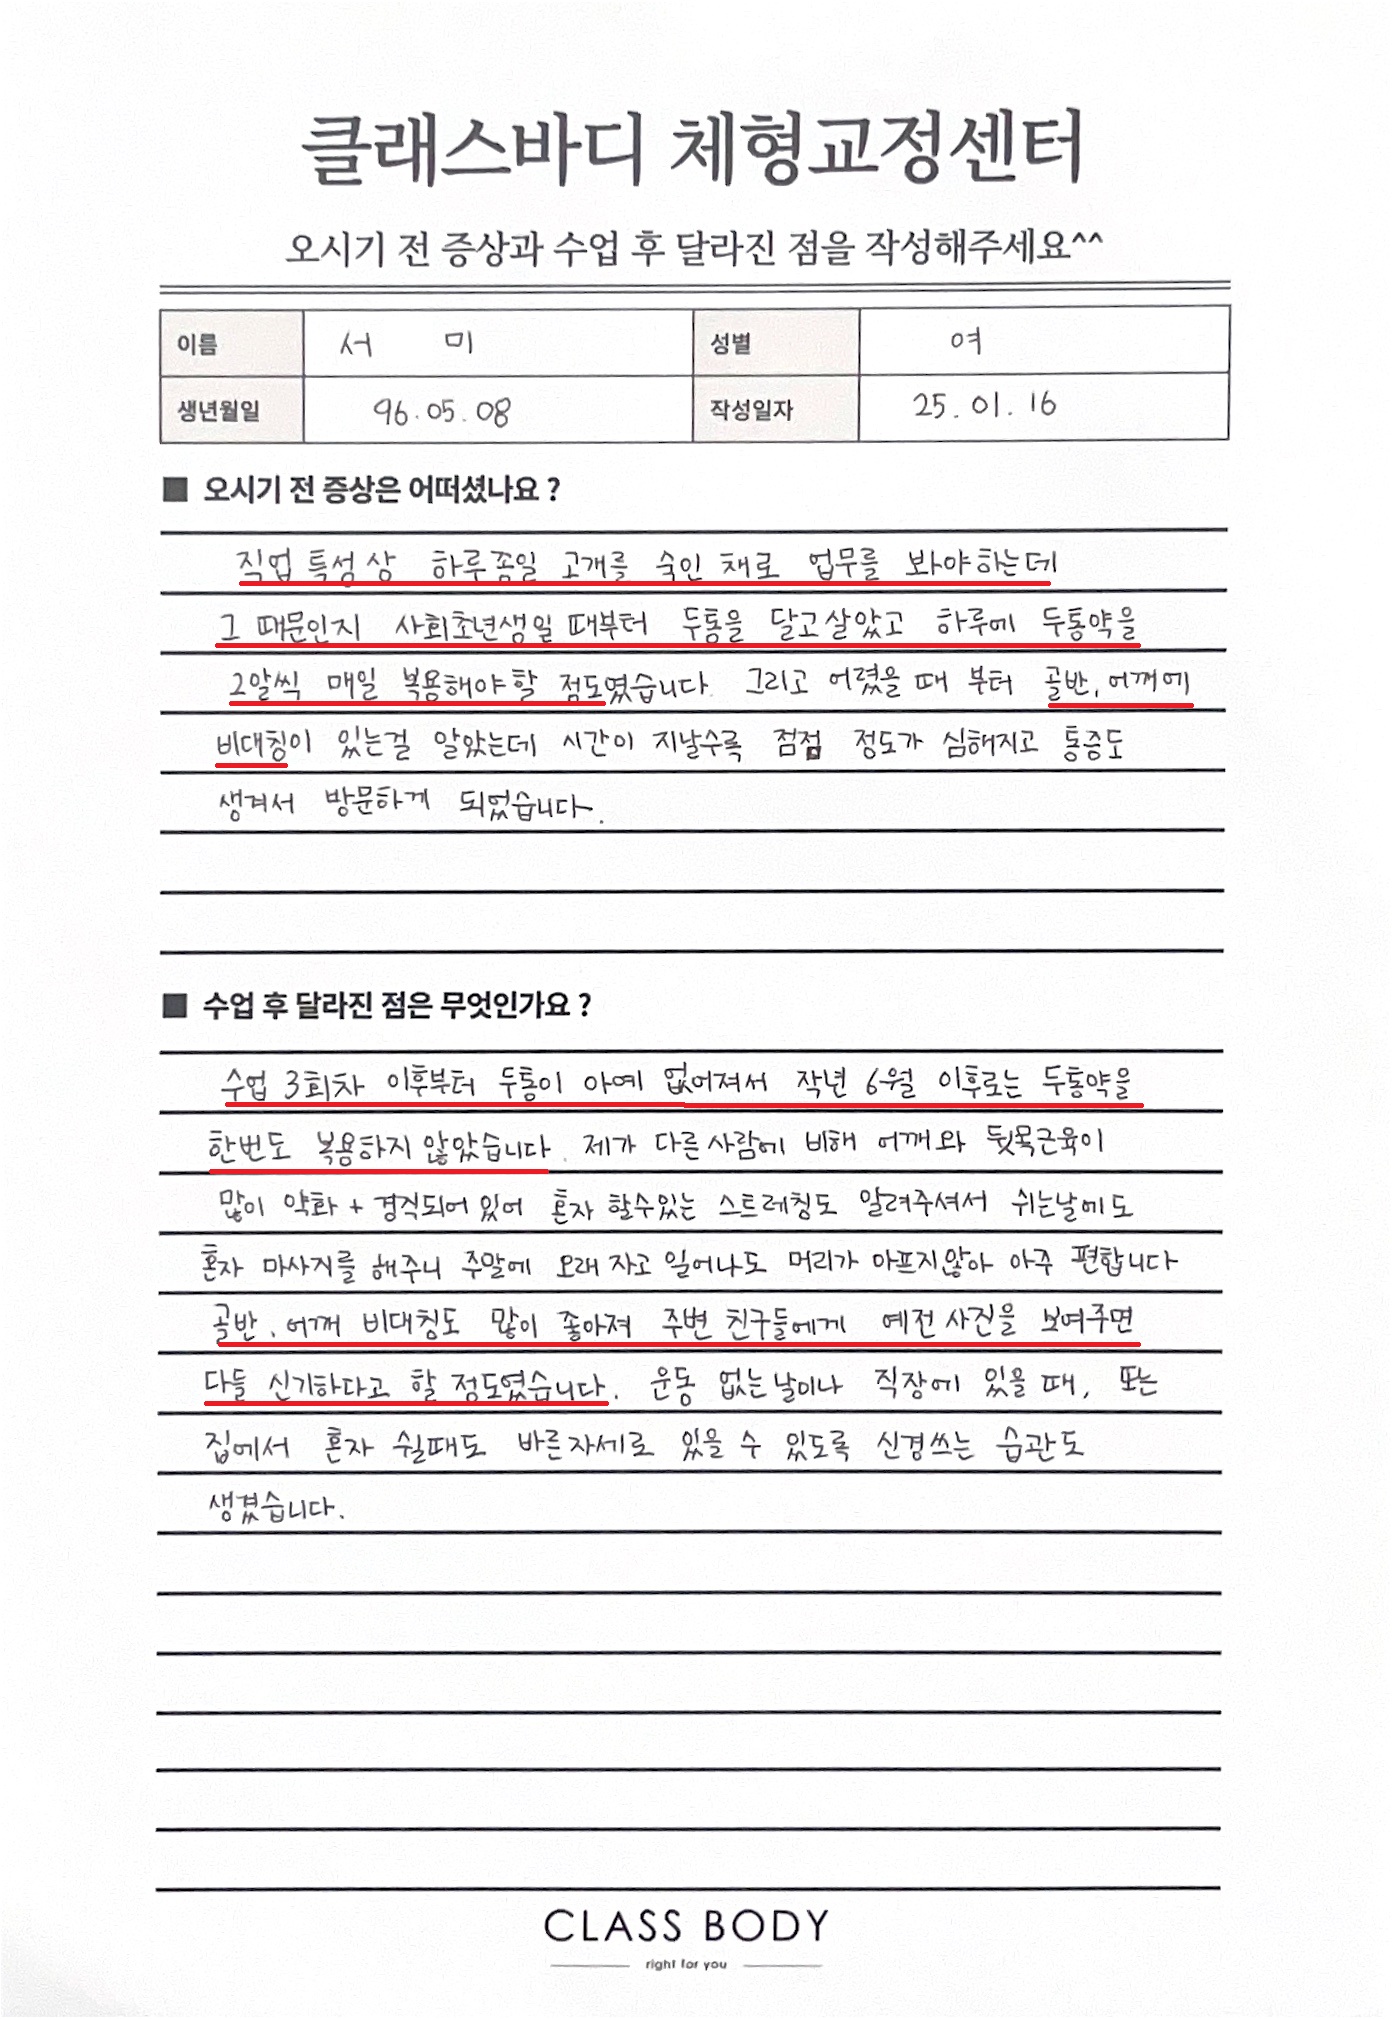 클래스바디 체형교정센터
오시기 전 증상과 수업 후 달라진 점을 작성해주세요^^
이름 서 미 성별 여
생년월일 96.05.08 작성일자 25.01.16
■ 오시기 전 증상은 어떠셨나요 ?
직업 특성상 하루종일 고개를 숙인 채로 업무를 봐야하는데
그 때문인지 사회초년생일 때부터 두통을 달고살았고 하루에 두통약을
2알씩 매일 복용해야할 정도였습니다. 그리고 어렸을 때 부터 골반, 어깨에
비대칭이 있는걸 알았는데 시간이 지날수록 점점 정도가 심해지고 통증도
생겨서 방문하게 되었습니다.
■ 수업 후 달라진 점은 무엇인가요 ?
수업 3회차 이후부터 두통이 아예 없어져서 작년 6월 이후로는 두통약을
한번도 복용하지 않았습니다. 제가 다른사람에 비해 어깨와 뒷목근육이
많이 약화 + 경직되어 있어 혼자 할수있는 스트레칭도 알려주셔서 쉬는날에도
혼자 마사지를 해주니 주말에 오래 자고 일어나도 머리가 아프지않아 아주 편합니다
골반, 어깨 비대칭도 많이 좋아져 주변 친구들에게 예전 사진을 보여주면
다들 신기하다고 할 정도였습니다. 운동 없는날이나 직장에 있을 때, 또는
집에서 혼자 쉴때도 바른자세로 있을 수 있도록 신경쓰는 습관도
생겼습니다.
CLASS BODY
right for you